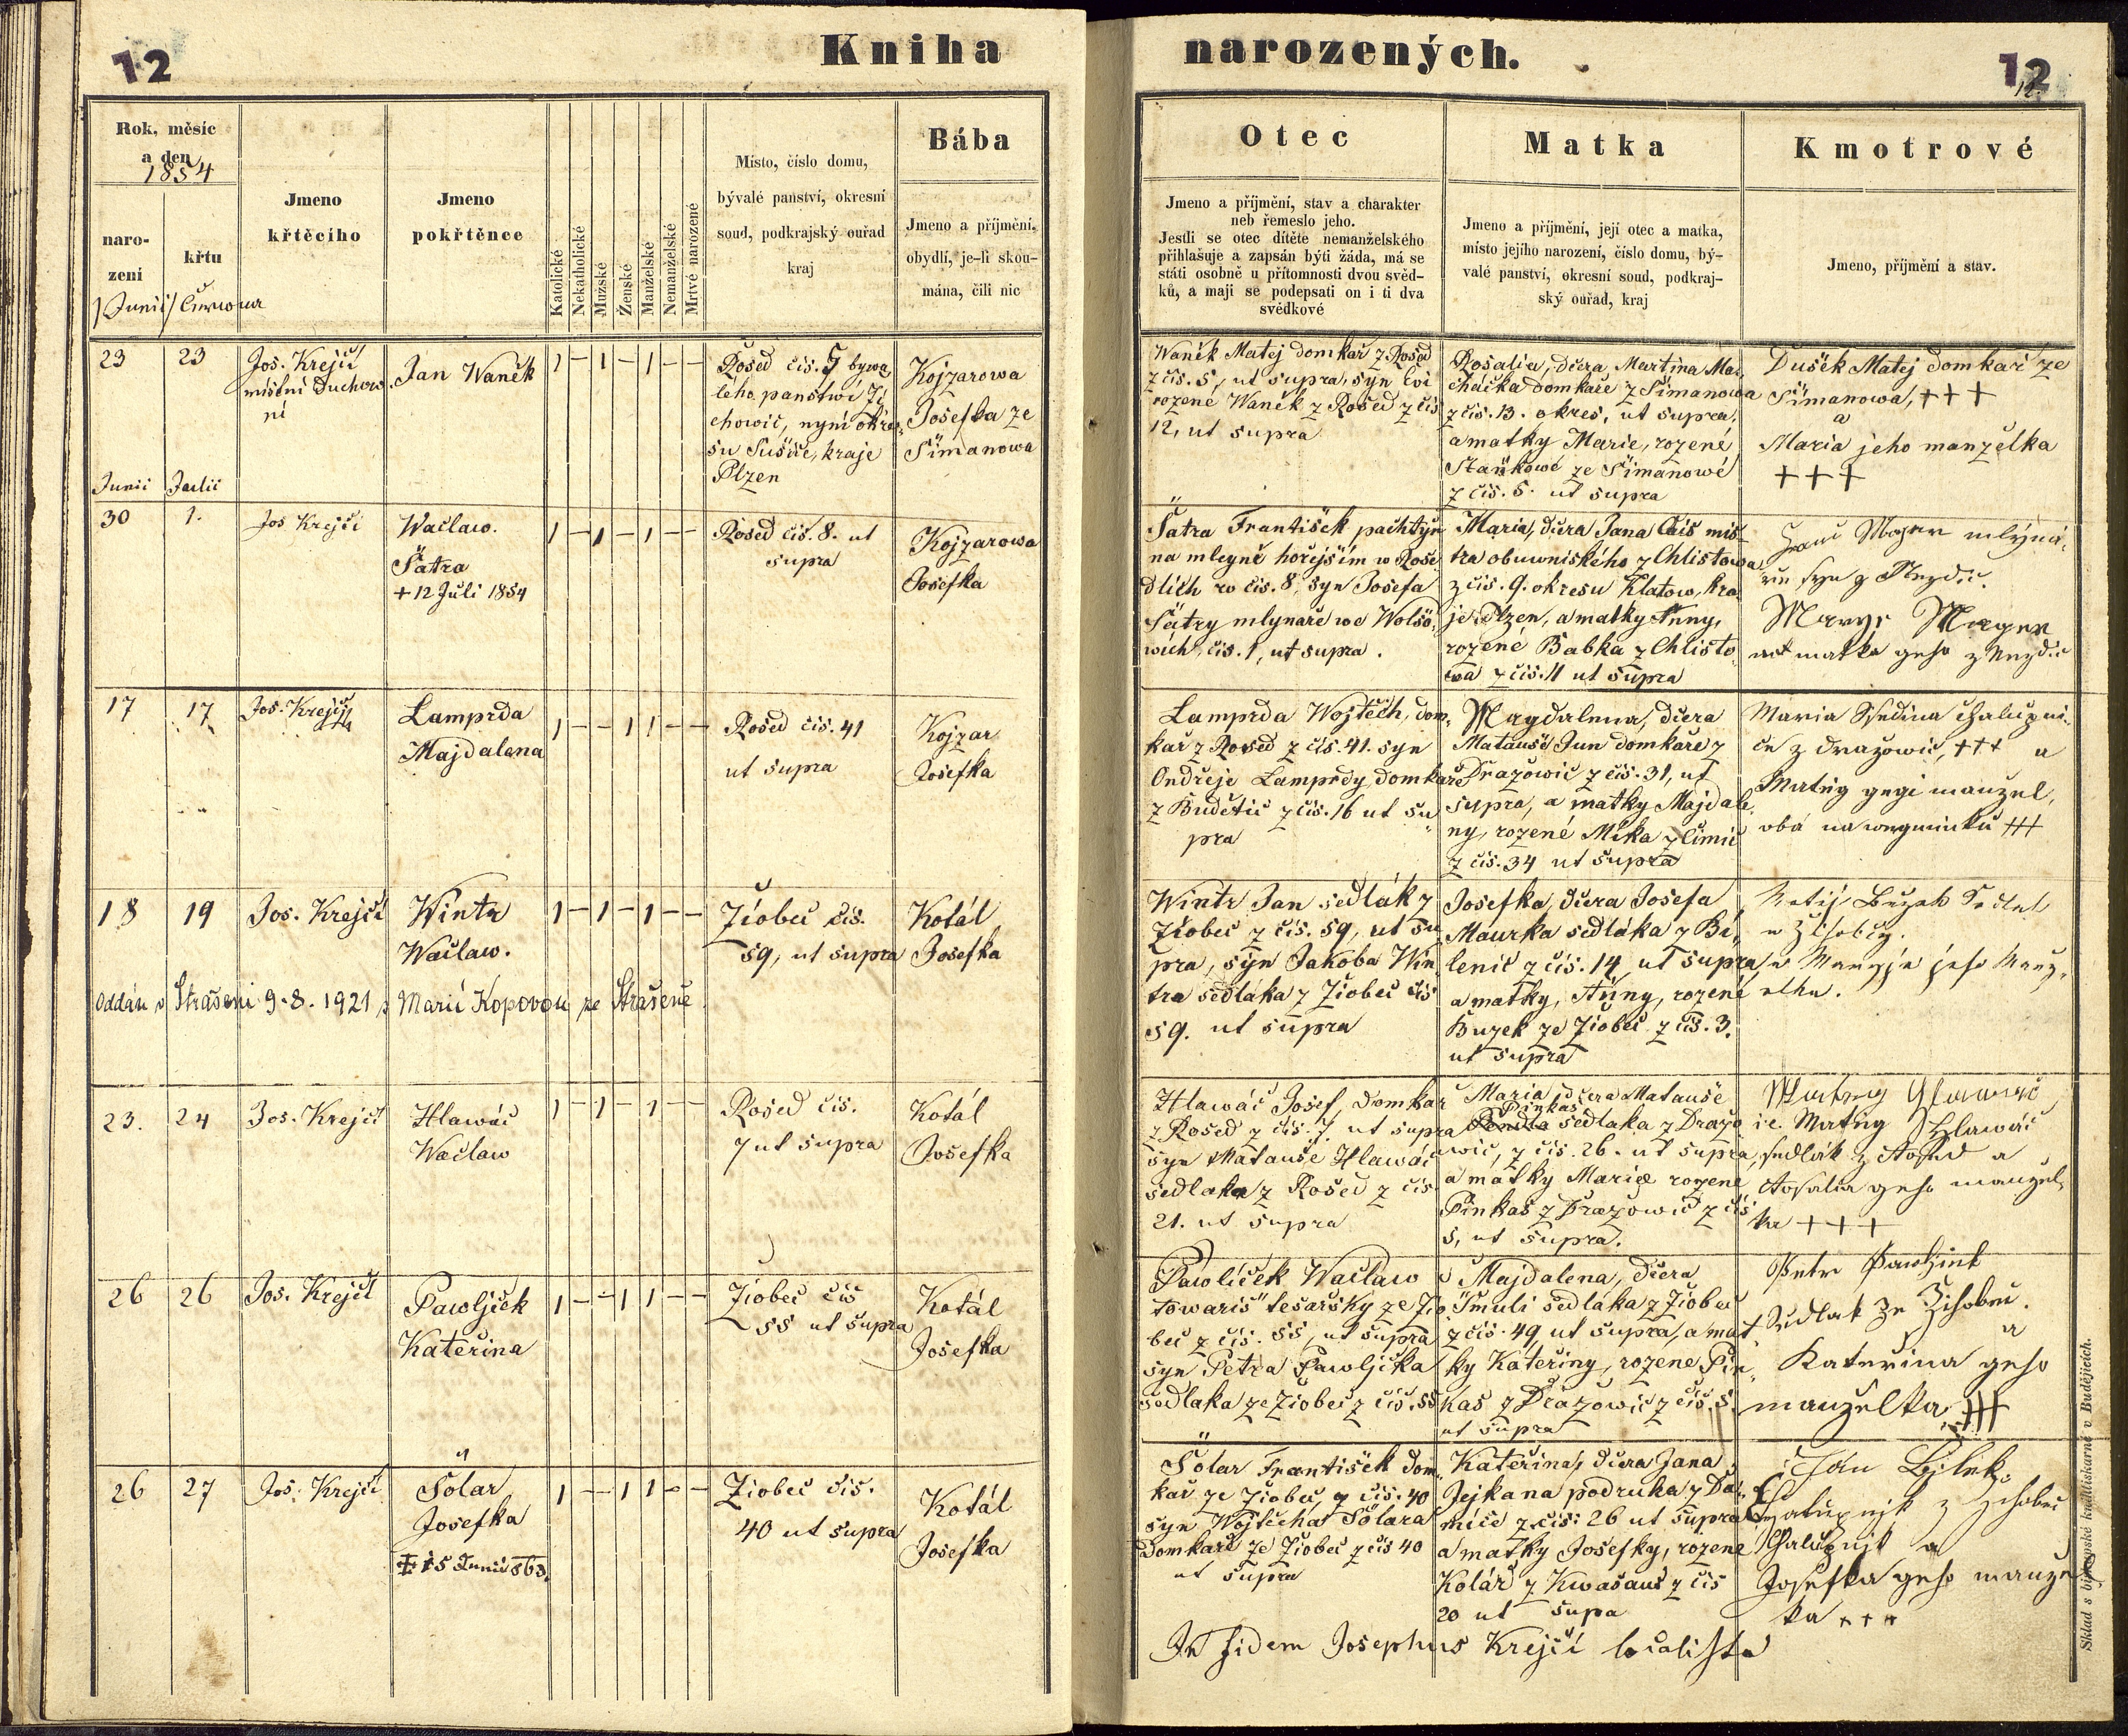 12
Kniha
Rok, měsíc
a den
1854
naro-
zení
křtu
Junii / Června
Jmeno
křtěcího
Jmeno
pokřtěnce
Katolické
Nekatholické
Mužské
Ženské
Manželské
Nemanželské
Mrtvé narozené
Místo, číslo domu,
bývalé panství, okresní
soud, podkrajský ouřad
kraj
Bába
Jmeno a příjmení,
obydlí, je-li skou-
mána, čili nic
23
23
Jos. Krejčí
místní Duchow
ní
Jan Waněk
1 – 1 – 1 – –
Rosed čis. 5 býwa
lého panstwí Ži
chowic, nyní okre
su Sušice, kraje
Plzen
Kojzarowa
Josefka ze
Simanowa
Junii
Julii
30
1.
Jos Krejčí
Waclaw.
Šatra
+ 12 Juli 1854
1 – 1 – 1 – –
Rosed čis. 8. ut
supra
Kojzarowa
Josefka
17
17
Jos. Krejčí
Lamprda
Majdalena
1 – – 1 1 – –
Rosed čis. 41
ut supra
Kojzar
Josefka
18
19
Jos. Krejčí
Wintr
Waclaw.
1 – 1 – 1 – –
Žiobec čis.
59, ut supra
Kotál
Josefka
Oddán v Strašeni 9-8-1921 s Marií Kopovou ze Strašene
23.
24
Jos. Krejčí
Hlawáč
Waclaw
1 – 1 – 1 – –
Rosed čis.
7 ut supra
Kotál
Josefka
26
26
Jos. Krejčí
Pawljček
Kateřina
1 – – 1 1 – –
Žiobec čis
55 ut supra
Kotál
Josefka
26
27
Jos. Krejčí
Šolar
Josefka
15 Junii 863.
1 – – 1 1 – –
Žiobec čis.
40 ut supra
Kotál
Josefka
narozených.
12
12.
Otec
Jmeno a příjmění, stav a charakter
neb řemeslo jeho.
Jestli se otec dítěte nemanželského
přihlašuje a zapsán býti žáda, má se
státi osobně u přítomnosti dvou svěd-
ků, a mají se podepsati on i ti dva
svědkové
Matka
Jmeno a příjmění, její otec a matka,
místo jejího narození, číslo domu, bý-
valé panství, okresní soud, podkraj-
ský ouřad, kraj
Kmotrové
Jmeno, příjmění a stav.
Waněk Matej domkař z Rosed
z čis. 5, ut supra, syn Evi
rozené Waněk z Rosed z čis
12, ut supra
Rosalia, dcera Martina Ma
cháčka domkaře z Simanowa
z čis. 13. okres, ut supra,
a matky Marie, rozené
Staňkowé ze Simanowé
z čis. 5. ut supra
Dušek Matej domkař ze
Simanowa, +++
a
Maria jeho manželka
+++
Šatra František pachtýř
na mlegně hořejším w Rose
dlích w čis. 8, syn Josefa
Šatry mlynaře we Wolšo
wích, čis. 1, ut supra.
Maria, dcera Jana Čais mis
tra obuwniského z Chlistowa
z čis. 9. okresu Klatow, kra
je Plzen, a matky Anny,
rozené Babka z Chlisto
wa z čis. 11 ut supra
matka geho z Nezdic
Lamprda Wojtěch, dom
kař z Rosed z čis. 41. syn
Ondřeje Lamprdy, domkaře
z Budětic z čis. 16 ut su
pra
Magdalena, dcera
Matauše Jun domkaře z
Dražowic z čis. 31, ut
supra, a matky Majdale
ny, rozené Mika z Čimic
z čis. 34 ut supra
Maria
z Dražowic, +++ a
Matěg gegi manžel,
oba na wegminku +++
Wintr Jan sedlák z
Žiobec z čis. 59, ut su
pra, syn Jakoba Win
tra sedláka z Žiobec čis
59. ut supra
Josefka, dcera Josefa
Maurka sedláka z Bi
lenic z čis. 14, ut supra
a matky, Anny, rozené
Buzek ze Žiobec z čis. 3.
ut supra
Hlawáč Josef, domkař
z Rosed z čis. 7. ut supra
syn Matauše Hlawáč
sedlaka z Rosed z čis.
21. ut supra
Maria dcera Matauše
Pinkas
sedlaka z Dražo
wic, z čis. 26. ut supra,
a matky Marie rozené
Pinkas z Dražowic z čis
5, ut supra.
i.e. Matěg Hlawáč
sedlák z Rosed a
Rosalia geho manžel
ka +++
Pawlíček Waclaw
towariš tesařský ze Žio
bec z čis. 55, ut supra
syn Petra Pawljčka
sedlaka ze Žiobec z čis. 55
Majdalena, dcera
Šmuli sedláka z Žiobec
z čis. 49, ut supra, a mat
ky Kateřiny, rozené Pin
kas z Dražowic z čis. 5.
ut supra
Petr
Sedlak ze Žihobec.
a
Kateřina geho
manželka +++
Šolar František dom
kař ze Žiobec z čis. 40
syn Wojtěcha Šolara
domkaře ze Žiobec z čis 40
ut supra
Kateřina, dcera Jana
Jejkana podruha z Da
mice z čis: 26 ut supra
a matky Josefky, rozené
Kolář z Kwašaus z čis
20 ut supa
Jan Bjlek
Chalupnjk z Žihobec
Chalupnjk a
Josefka geho manžel
ka +++
In fidem Josephus Krejčí localista
Sklad s biskupské knihtiskárně v Budějicích.